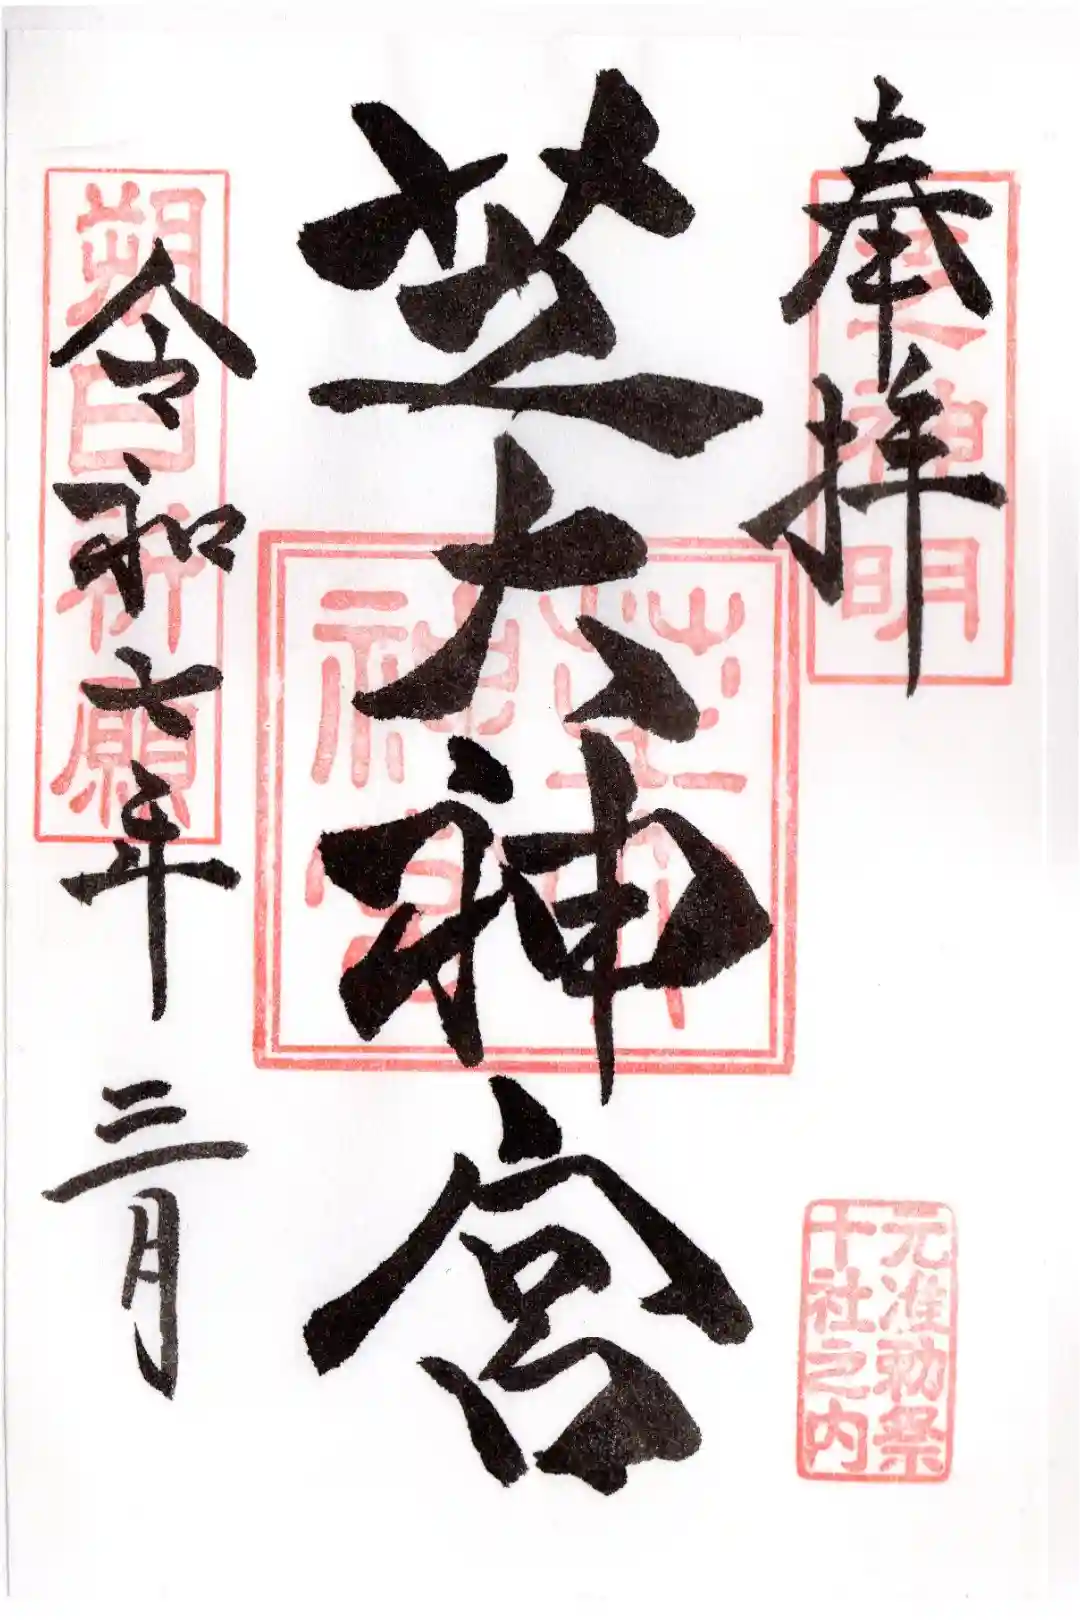 奉拝
芝大神宮
令和七年 三月
芝神明
芝大神宮
朔日祈願
元准勅祭
十社之内